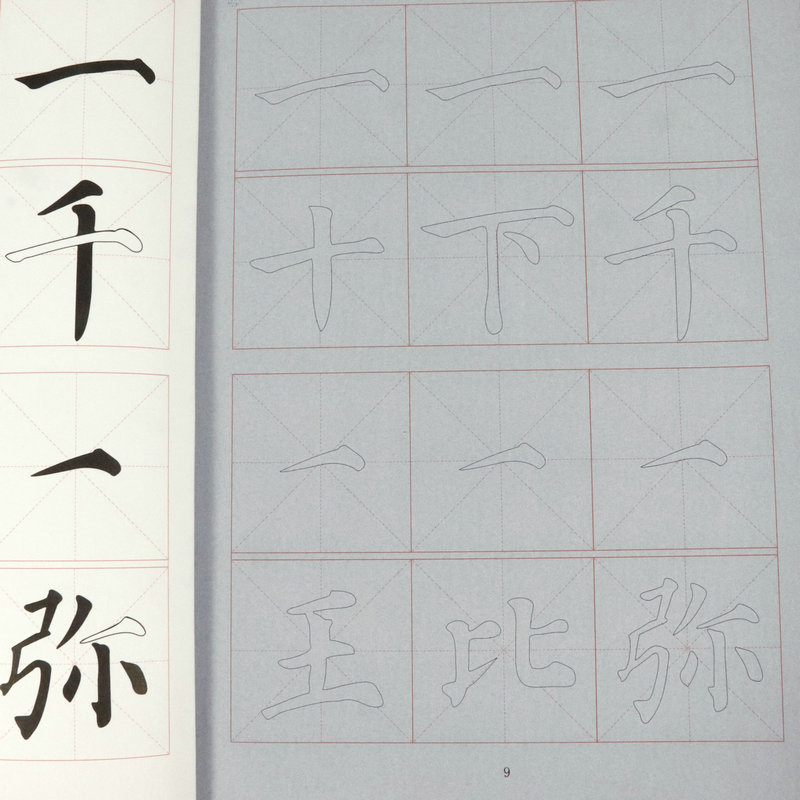 一 一 一 一
千 十 下 千
一 一 一 一
弥 王 比 弥
9